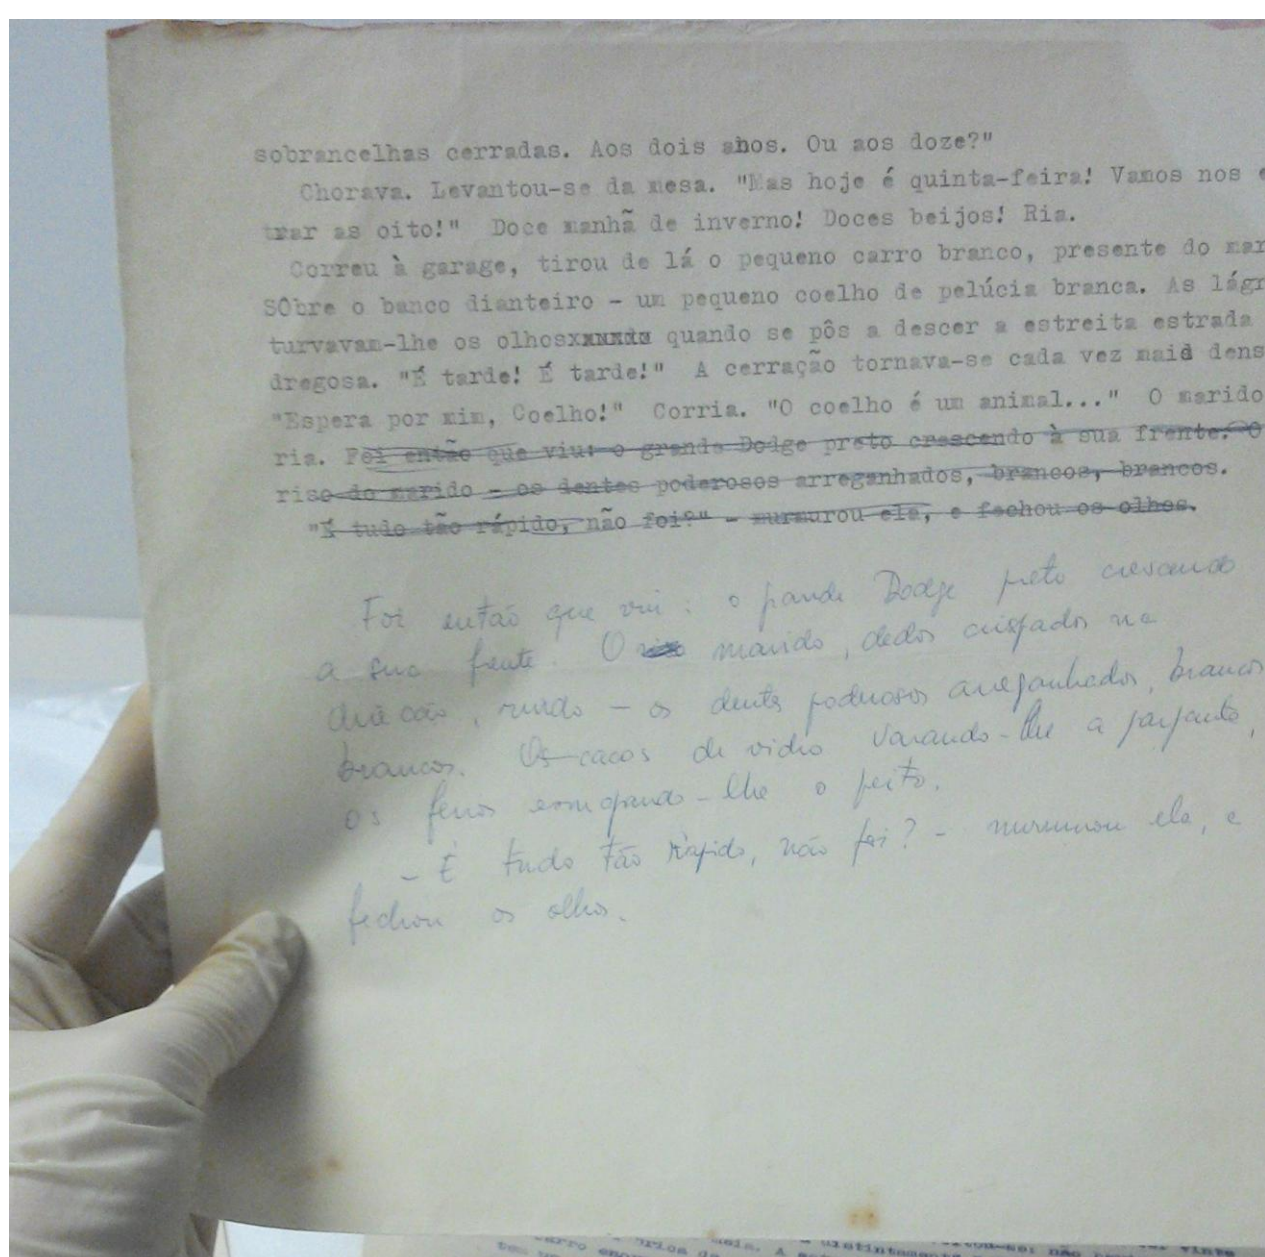 sobrancelhas cerradas. Aos dois anos. Ou aos doze?"
Chorava. Levantou-se da mesa. "Mas hoje é quinta-feira! Vamos nos e
trar as oito!" Doce manhã de inverno! Doces beijos! Ria.
Correu à garage, tirou de lá o pequeno carro branco, presente do mar
SObre o banco dianteiro - um pequeno coelho de pelúcia branca. As lágr
turvavam-lhe os olhos quando se pôs a descer a estreita estrada
dregosa. "É tarde! É tarde!" A cerração tornava-se cada vez maid dens
"Espera por mim, Coelho!" Corria. "O coelho é um animal..." O marido
ria. Foi então que viu: o grande Dodge preto crescendo à sua frente. O
riso do marido - os dentes poderosos arreganhados, brancos, brancos.
"É tudo tão rápido, não foi?" - murmurou ela, e fechou os olhos.
Foi então que viu: o grande Dodge preto crescendo
a sua frente. O marido, dedos crispados na
direção, rindo - os dentes poderosos arreganhados, brancos
brancos. Os cacos de vidro varando-lhe a garganta,
os ferros esmagando-lhe o peito.
- É tudo tão rápido, não foi? - murmurou ela, e
fechou os olhos.